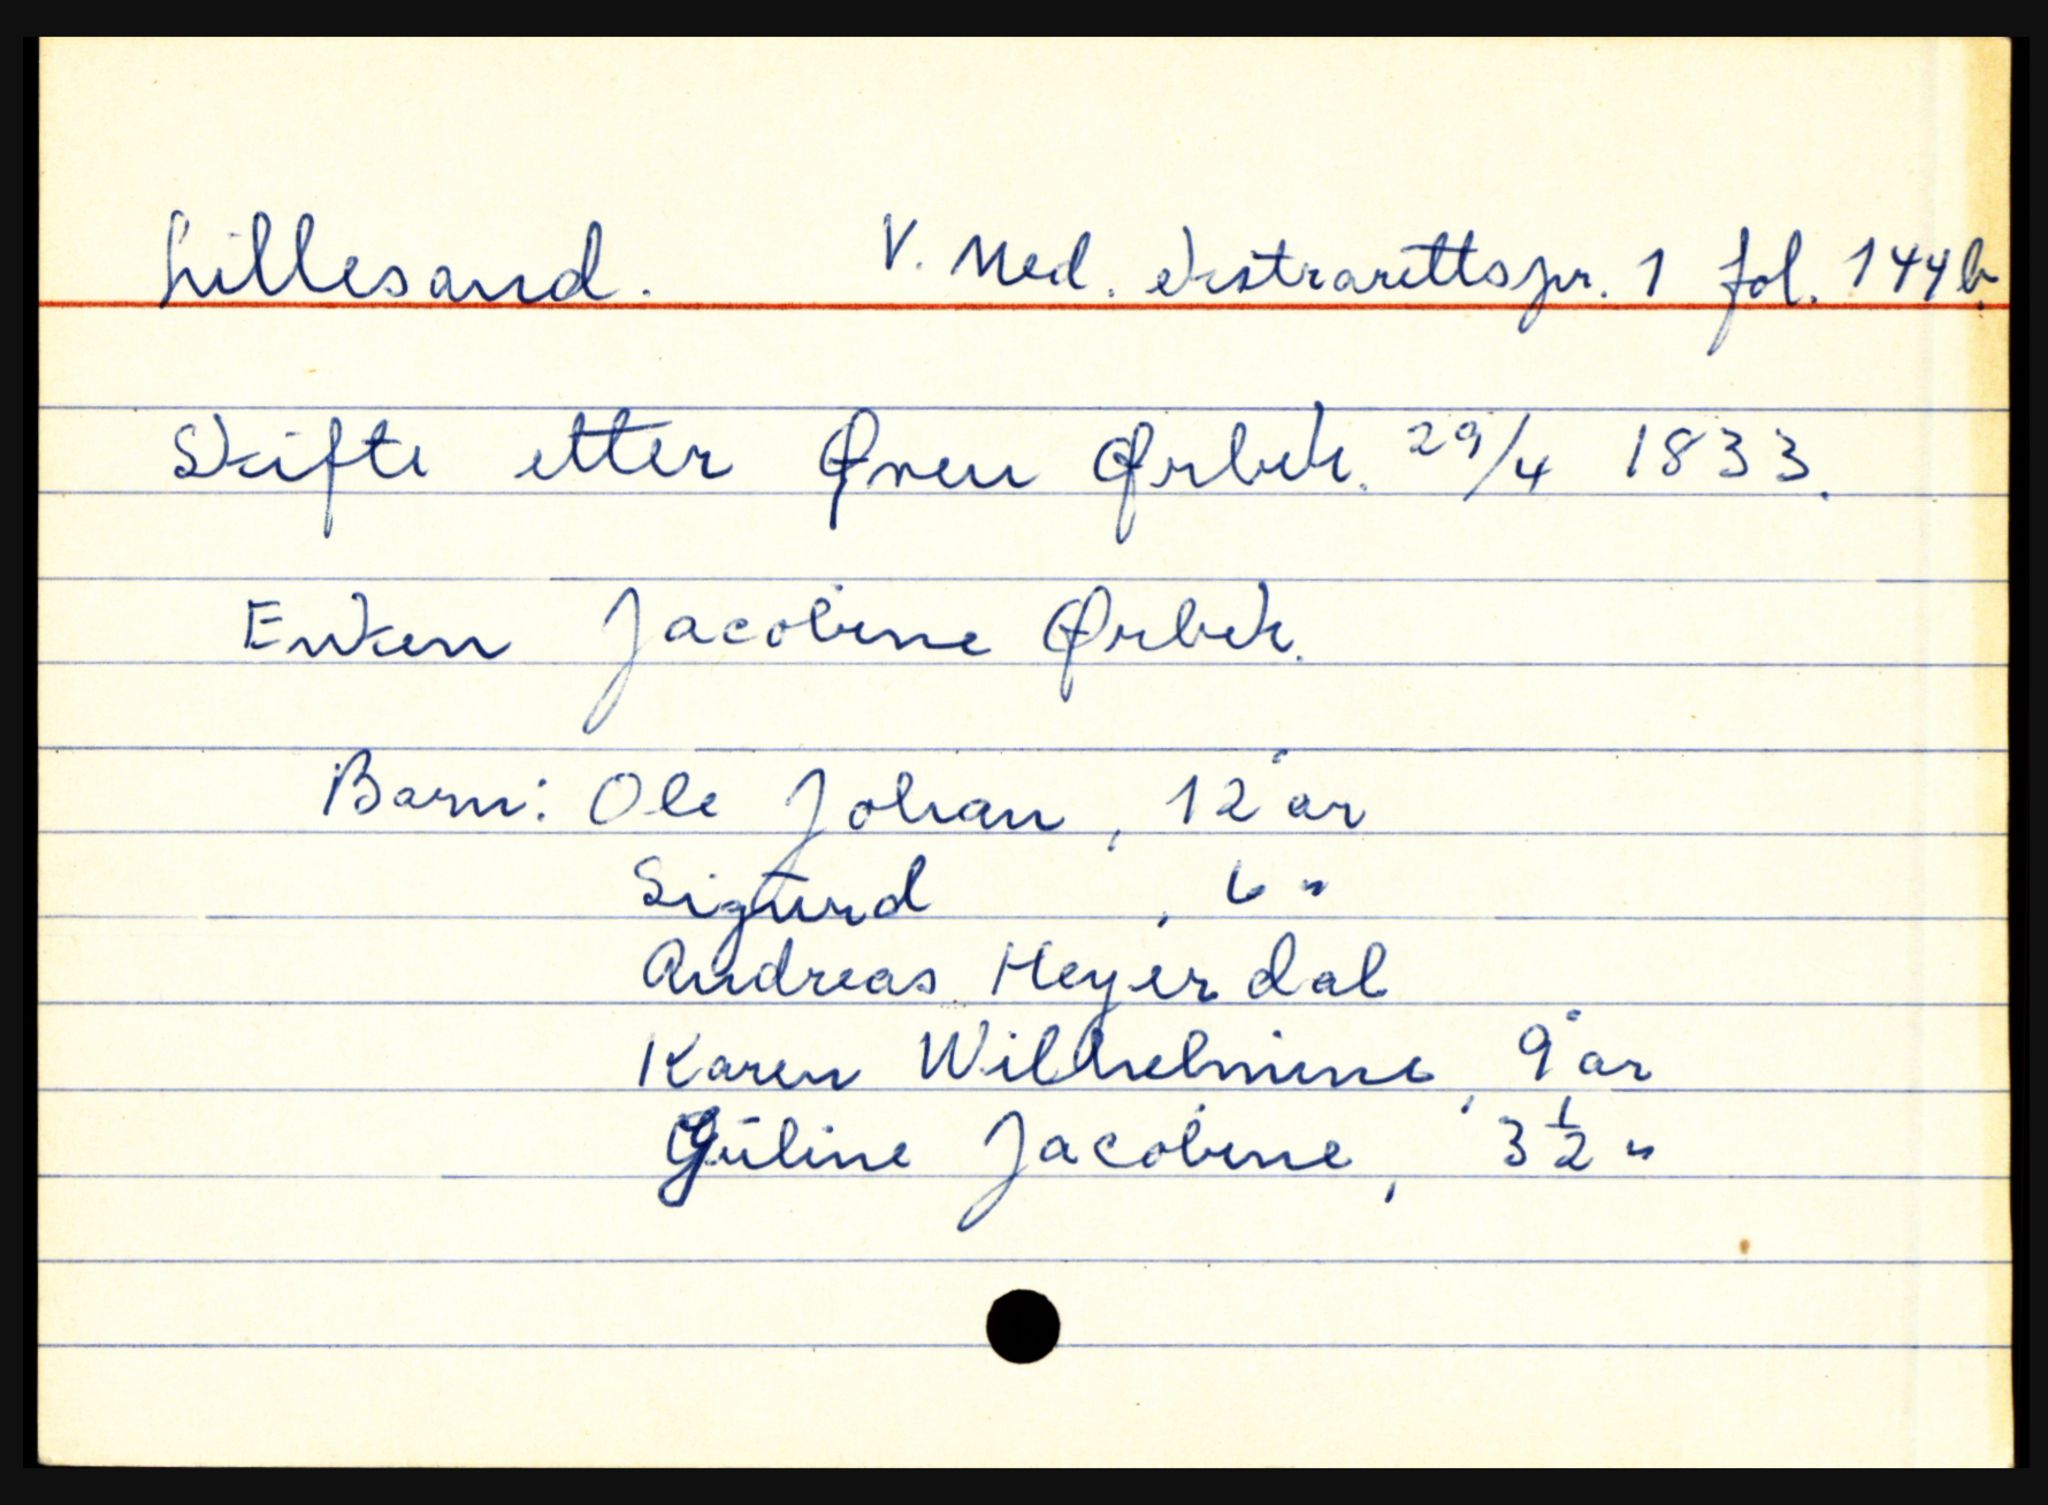 Lillesand. V. Ned. ekstrarettspr. 1 fol. 144b.
Skifte etter Øven Ørbek. 29/4 1833.
Enken Jacobine Ørbek.
Barn: Ole Johan, 12 år
Sigurd, 6 "
Andreas Heyerdal
Karen Wilhelmine, 9 år
Guline Jacobine, 3 1/2 "